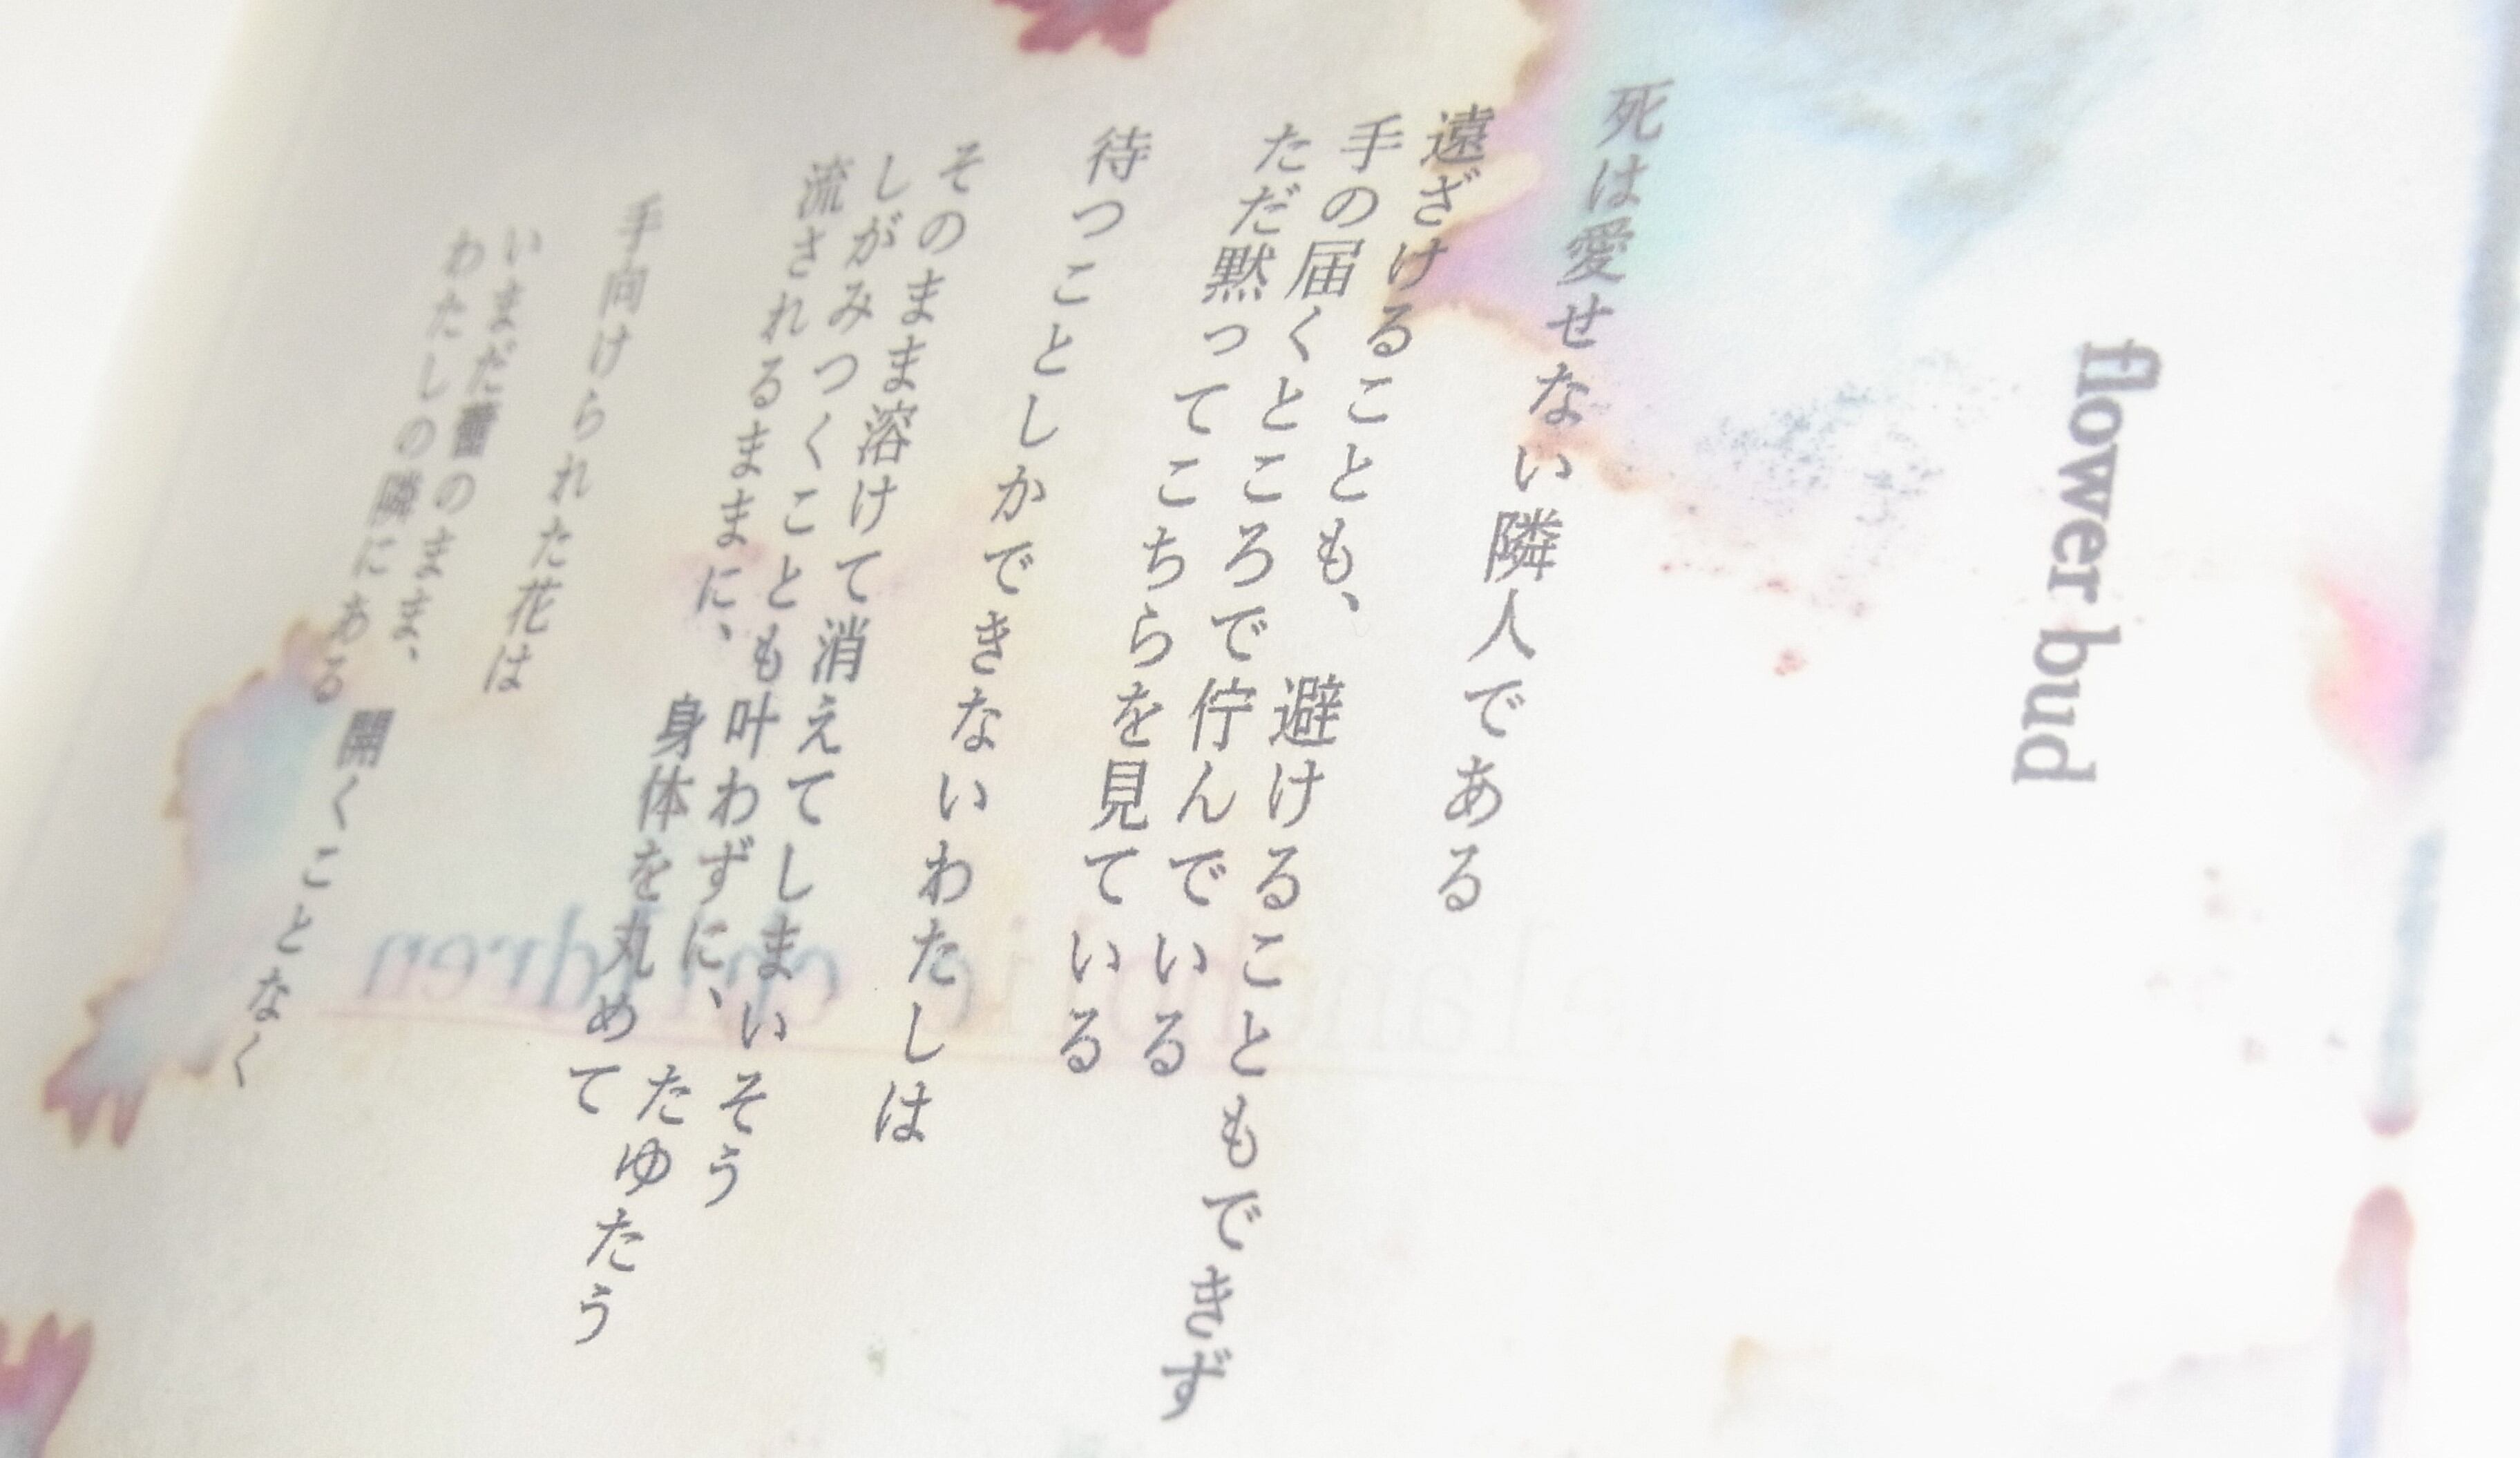 flower bud
死は愛せない隣人である
遠ざけることも、避けることもできず
手の届くところで佇んでいる
ただ黙ってこちらを見ている
待つことしかできないわたしは
そのまま溶けて消えてしまいそう
しがみつくことも叶わずに、たゆたう
流されるままに、身体を丸めて
手向けられた花は
いまだ蕾のまま、開くことなく
わたしの隣にある